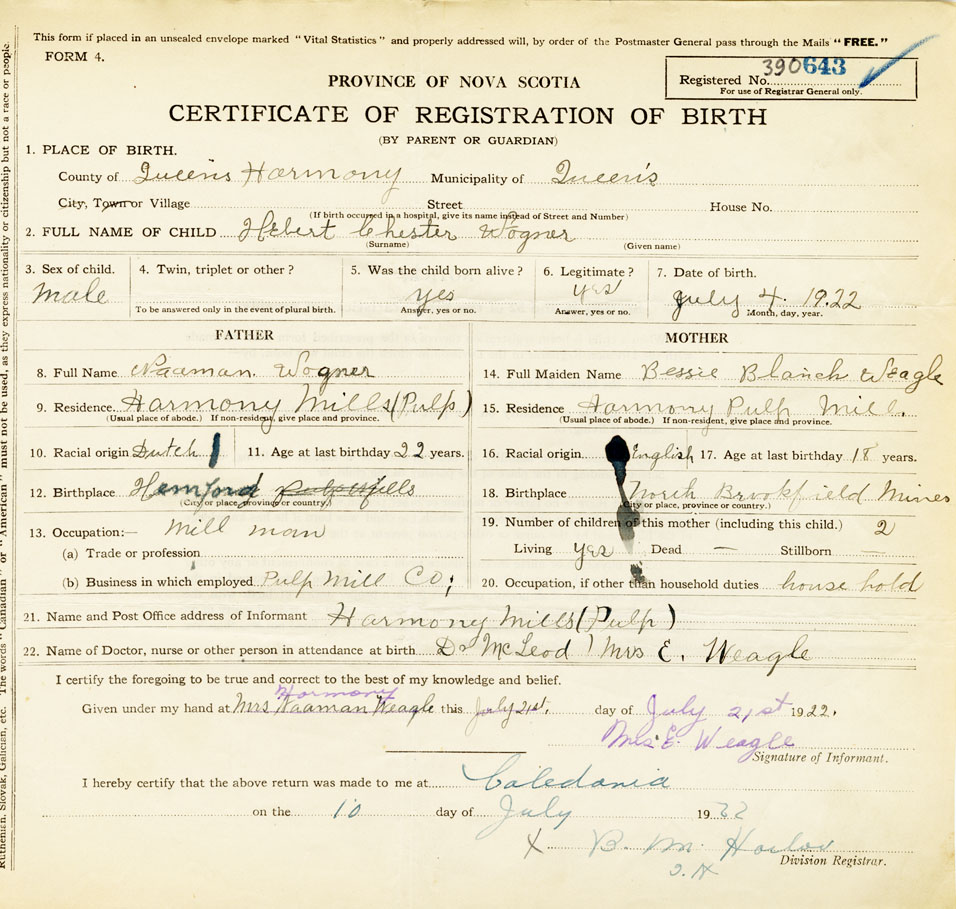 This form if placed in an unsealed envelope marked "Vital Statistics" and properly addressed will, by order of the Postmaster General pass through the Mails "FREE."
FORM 4.
PROVINCE OF NOVA SCOTIA
Registered No. 390643
For use of Registrar General only.
CERTIFICATE OF REGISTRATION OF BIRTH
(BY PARENT OR GUARDIAN)
1. PLACE OF BIRTH.
County of Queen's Harmony Municipality of Queen's
City, Town or Village Street House No.
(If birth occurred in a hospital, give its name instead of Street and Number)
2. FULL NAME OF CHILD Hebert Chester Wogner
(Surname) (Given name)
3. Sex of child. 4. Twin, triplet or other? 5. Was the child born alive? 6. Legitimate? 7. Date of birth.
Male yes yes July 4. 1922
To be answered only in the event of plural birth. Answer, yes or no. Answer, yes or no. Month, day, year.
FATHER MOTHER
8. Full Name Naaman. Wogner 14. Full Maiden Name Bessie Blanch Weagle
9. Residence Harmony Mills (Pulp) 15. Residence Harmony Pulp Mill.
(Usual place of abode.) If non-resident, give place and province. (Usual place of abode.) If non-resident, give place and province.
10. Racial origin Dutch 11. Age at last birthday 22 years. 16. Racial origin English 17. Age at last birthday 18 years.
12. Birthplace Hemford 18. Birthplace North Brookfield Mines
(City or place, province or country.) (City or place, province or country.)
13. Occupation:— Mill man 19. Number of children of this mother (including this child.) 2
(a) Trade or profession Living yes Dead — Stillborn —
(b) Business in which employed Pulp Mill Co; 20. Occupation, if other than household duties house hold
21. Name and Post Office address of Informant Harmony Mills (Pulp)
22. Name of Doctor, nurse or other person in attendance at birth Dr McLeod / Mrs E. Weagle
I certify the foregoing to be true and correct to the best of my knowledge and belief.
Harmony
Given under my hand at Mrs Naaman Weagle this July 21st. day of July 21st 1922.
Mrs E. Weagle
Signature of Informant.
I hereby certify that the above return was made to me at Caledonia
on the 10 day of July 1922
X B. M.
Division Registrar.
Ruthenian, Slovak, Galician, etc. The words "Canadian" or "American" must not be used, as they express nationality or citizenship but not a race or people.